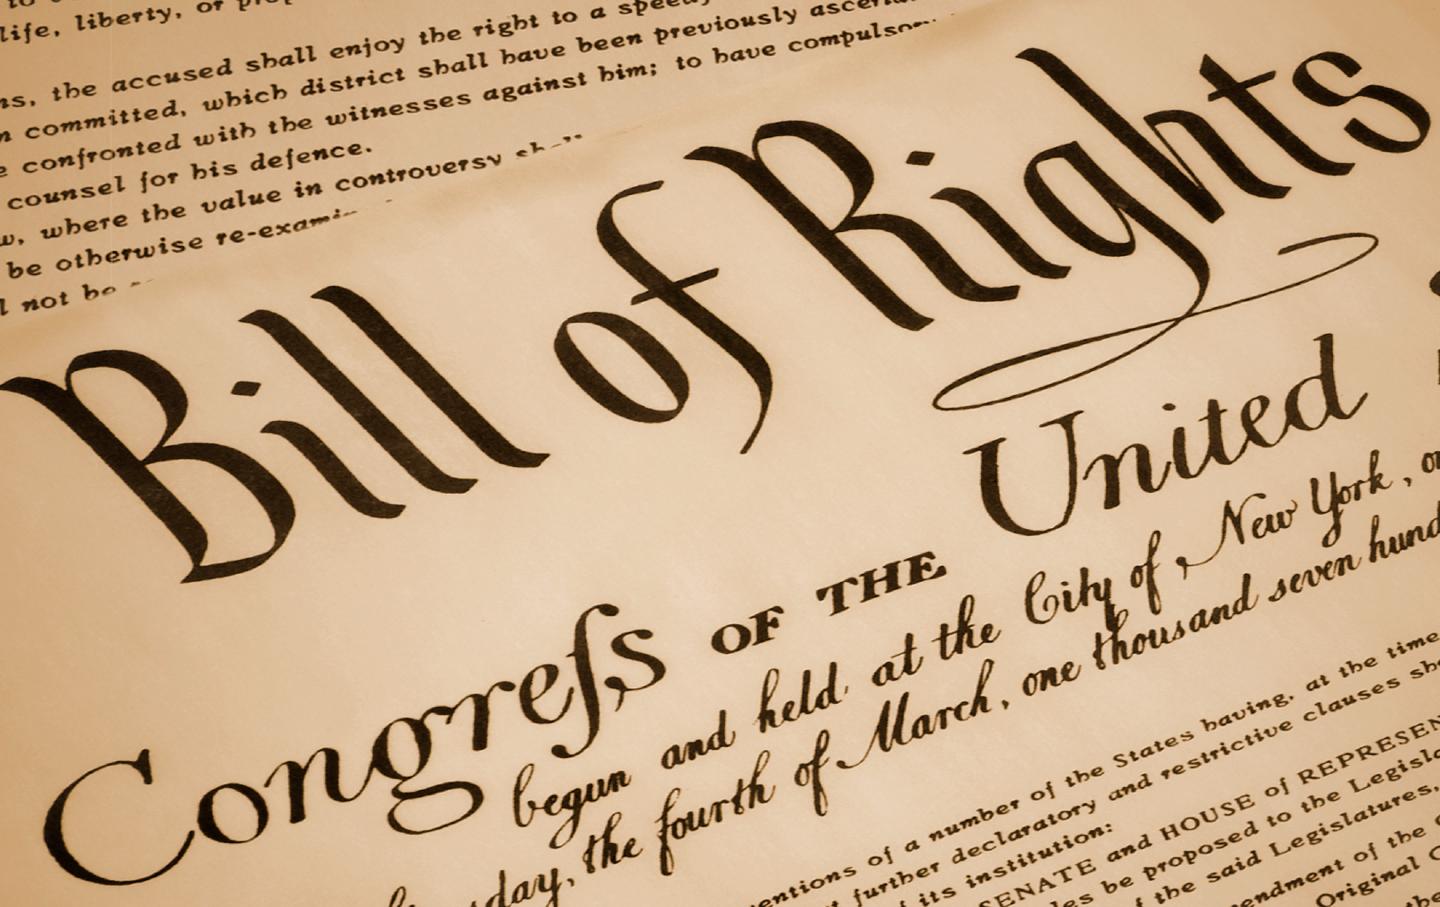 life, liberty, or
the accused shall enjoy the right to a speedy
committed, which district shall have been previously
confronted with the witnesses against him; to have
counsel for his defence.
where the value in controversy
be otherwise
not be
Bill of Rights
Congreſs OF THE United
begun and held at the City of New York,
the fourth of March, one thousand seven
of a number of the States having, at the time
further declaratory and restrictive clauses
its institution:
SENATE and HOUSE of
be proposed to the
the said Legislatures,
of the
Original